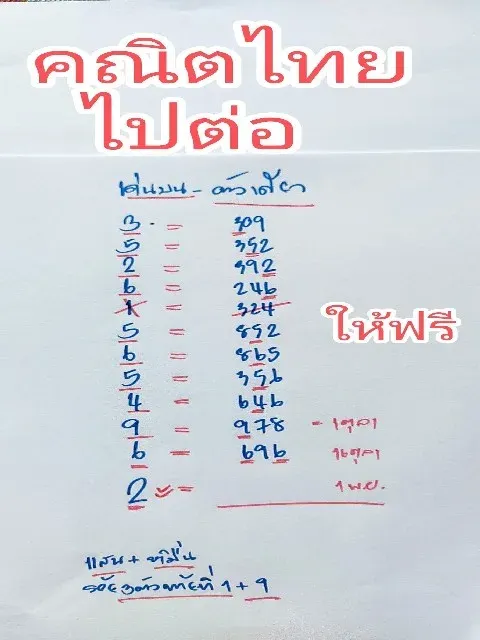 คณิตไทย
ไปต่อ
เด่นบน - ตัวเดียว
3 = 309
5 = 352
2 = 392
6 = 246
1 = 324
ให้ฟรี
5 = 852
6 = 865
5 = 356
4 = 646
9 = 978 - 1ตุลา
6 = 696 16ตุลา
2 = 1 พ.ย.
แสน + หมื่น
ร้อย3ตัวท้ายที่ 1 + 9